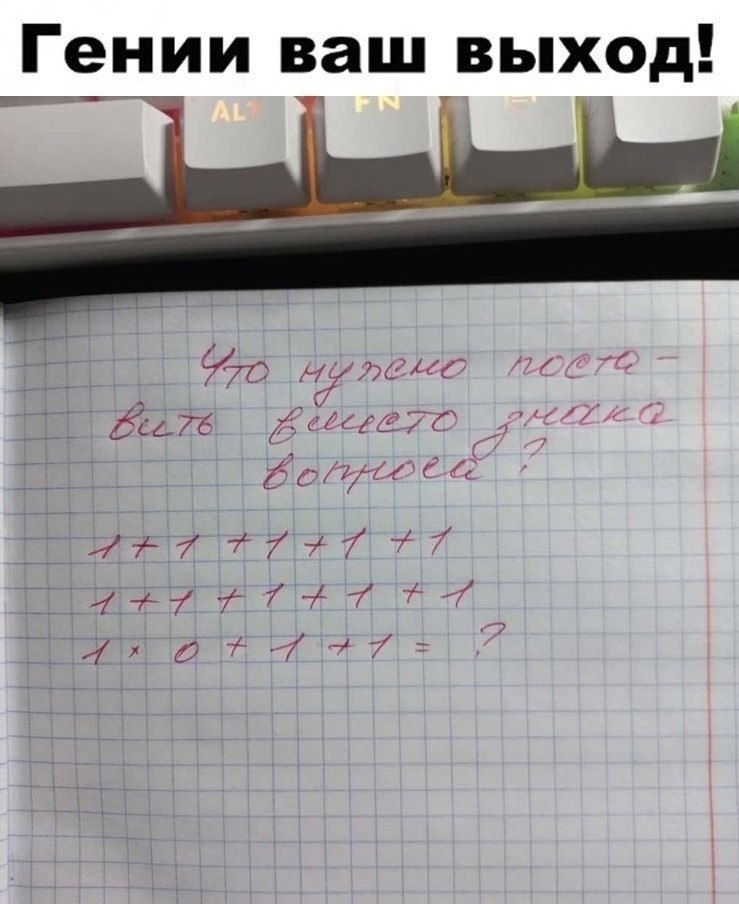 Гении ваш выход!
ALT FN
Что нужно поста-
вить вместо знака
вопроса?
1+1+1+1+1
1+1+1+1+1
1×0+1+1=?